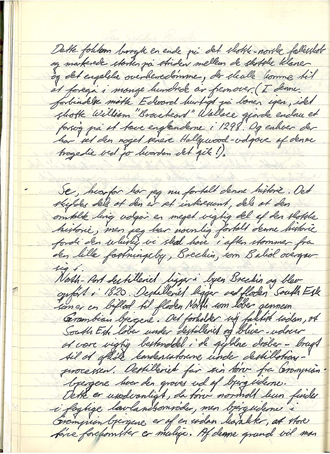 Dette folkom bragte en ende på det skotsk-norske fællesskab
og markerede starten på striden mellem de skotske klaner
og det engelske overherredømme, der skulle komme til
at foregå i mange hundrede år fremover. (I denne
forbindelse måtte Edward hurtigt på banen igen, idet
skotte William "Braveheart" Wallace gjorde endnu et
forsøg på at tæve englænderne i 1298. Og enhver der
har set den noget senere Hollywood-udgave af denne
tragedie ved jo hvordan det gik!).
Se, hvorfor har jeg nu fortalt denne historie. Det
skyldes dels at den er så interessant, dels at den
omtalte krig udgør en meget vigtig del af den skotske
historie, men jeg har navnlig fortalt denne historie
fordi den whisky vi skal have i aften stammer fra
den lille fæstningsby, Brechin, som Baliol overgav
sig i.
North-Port destilleriet ligger i byen Brechin og blev
opført i 1820. Destilleriet ligger ved floden South Esk
som er en biflod til floden North som løber gennem
Grampian bjergene. Det forholder sig faktisk sådan, at
South Esk løber under destilleriet og bliver - udover
at være vigtig bestanddel i de gyldne dråber - brugt
til at afkøle kondensatorerne under destillations-
processen. Destilleriet får sin tørv fra Grampian-
bjergene hvor den graves ud af bjergsiderne.
Dette er usædvanligt, da tørv normalt kun findes
i fugtige lavlandsområder, men bjergsiderne i
Grampian bjergene er af en sådan karakter, at store
tørveforekomster er mulige. Af denne grund vil man